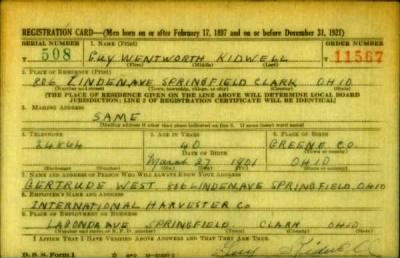 REGISTRATION CARD—(Men born on or after February 17, 1897 and on or before December 31, 1921)
SERIAL NUMBER 1. NAME (Print) ORDER NUMBER
T 508 GUY WENTWORTH KIDWELL T 11567
2. PLACE OF RESIDENCE (Print)
806 LINDEN AVE SPRINGFIELD CLARK OHIO
(Number and street) (Town, township, village, or city) (County) (State)
[THE PLACE OF RESIDENCE GIVEN ON THE LINE ABOVE WILL DETERMINE LOCAL BOARD
JURISDICTION; LINE 2 OF REGISTRATION CERTIFICATE WILL BE IDENTICAL]
3. MAILING ADDRESS
SAME
[Mailing address if other than place indicated on line 2. If same insert word same]
4. TELEPHONE 5. AGE IN YEARS 6. PLACE OF BIRTH
40 GREENE CO.
DATE OF BIRTH
March 27 1901 OHIO
(Exchange) (Number) (Mo.) (Day) (Yr.) (State or country)
7. NAME AND ADDRESS OF PERSON WHO WILL ALWAYS KNOW YOUR ADDRESS
GERTRUDE WEST LINDEN AVE SPRINGFIELD, OHIO
8. EMPLOYER'S NAME AND ADDRESS
INTERNATIONAL HARVESTER CO
9. PLACE OF EMPLOYMENT OR BUSINESS
LAGONDA AVE SPRINGFIELD, CLARK OHIO
(Number and street or R. F. D. number) (Town) (County) (State)
I AFFIRM THAT I HAVE VERIFIED ABOVE ANSWERS AND THAT THEY ARE TRUE.
D. S. S. Form 1 Guy Kidwell